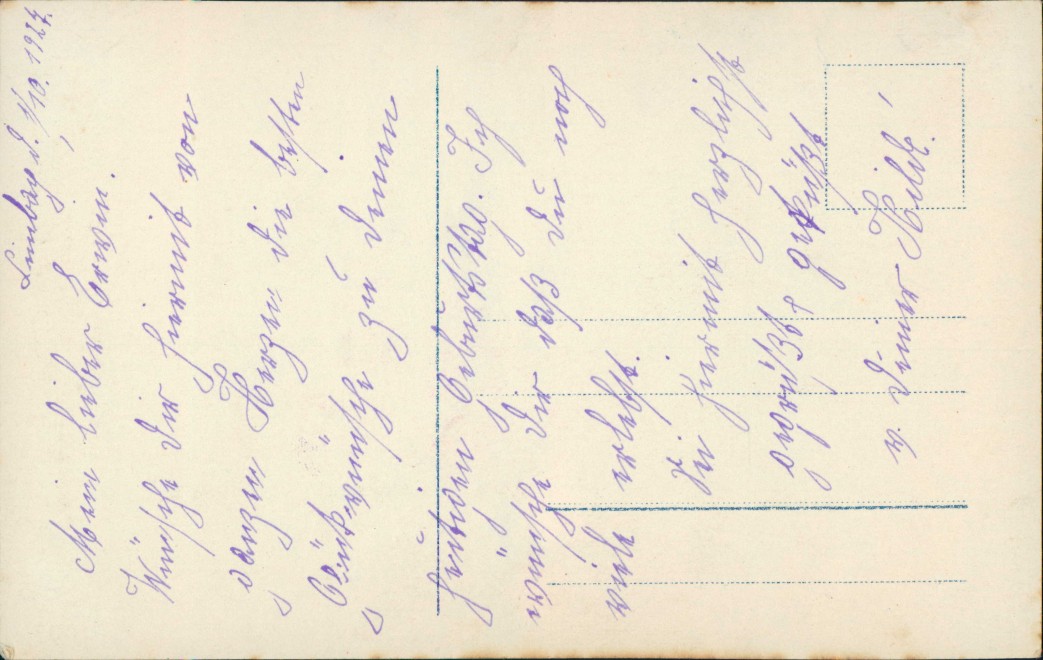 Limbach d. 1/10. 1927.
Mein lieber Erwin.
Wünsche dir hiermit von
ganzen Herzen die besten
Glückwünsche zu deinen
heutigen Geburtstag. Ich
wünsche dir daß du noch
viele erlebst.
Sei hiermit herzlichst
gegrüßt & geküßt
v. deiner Hilde.